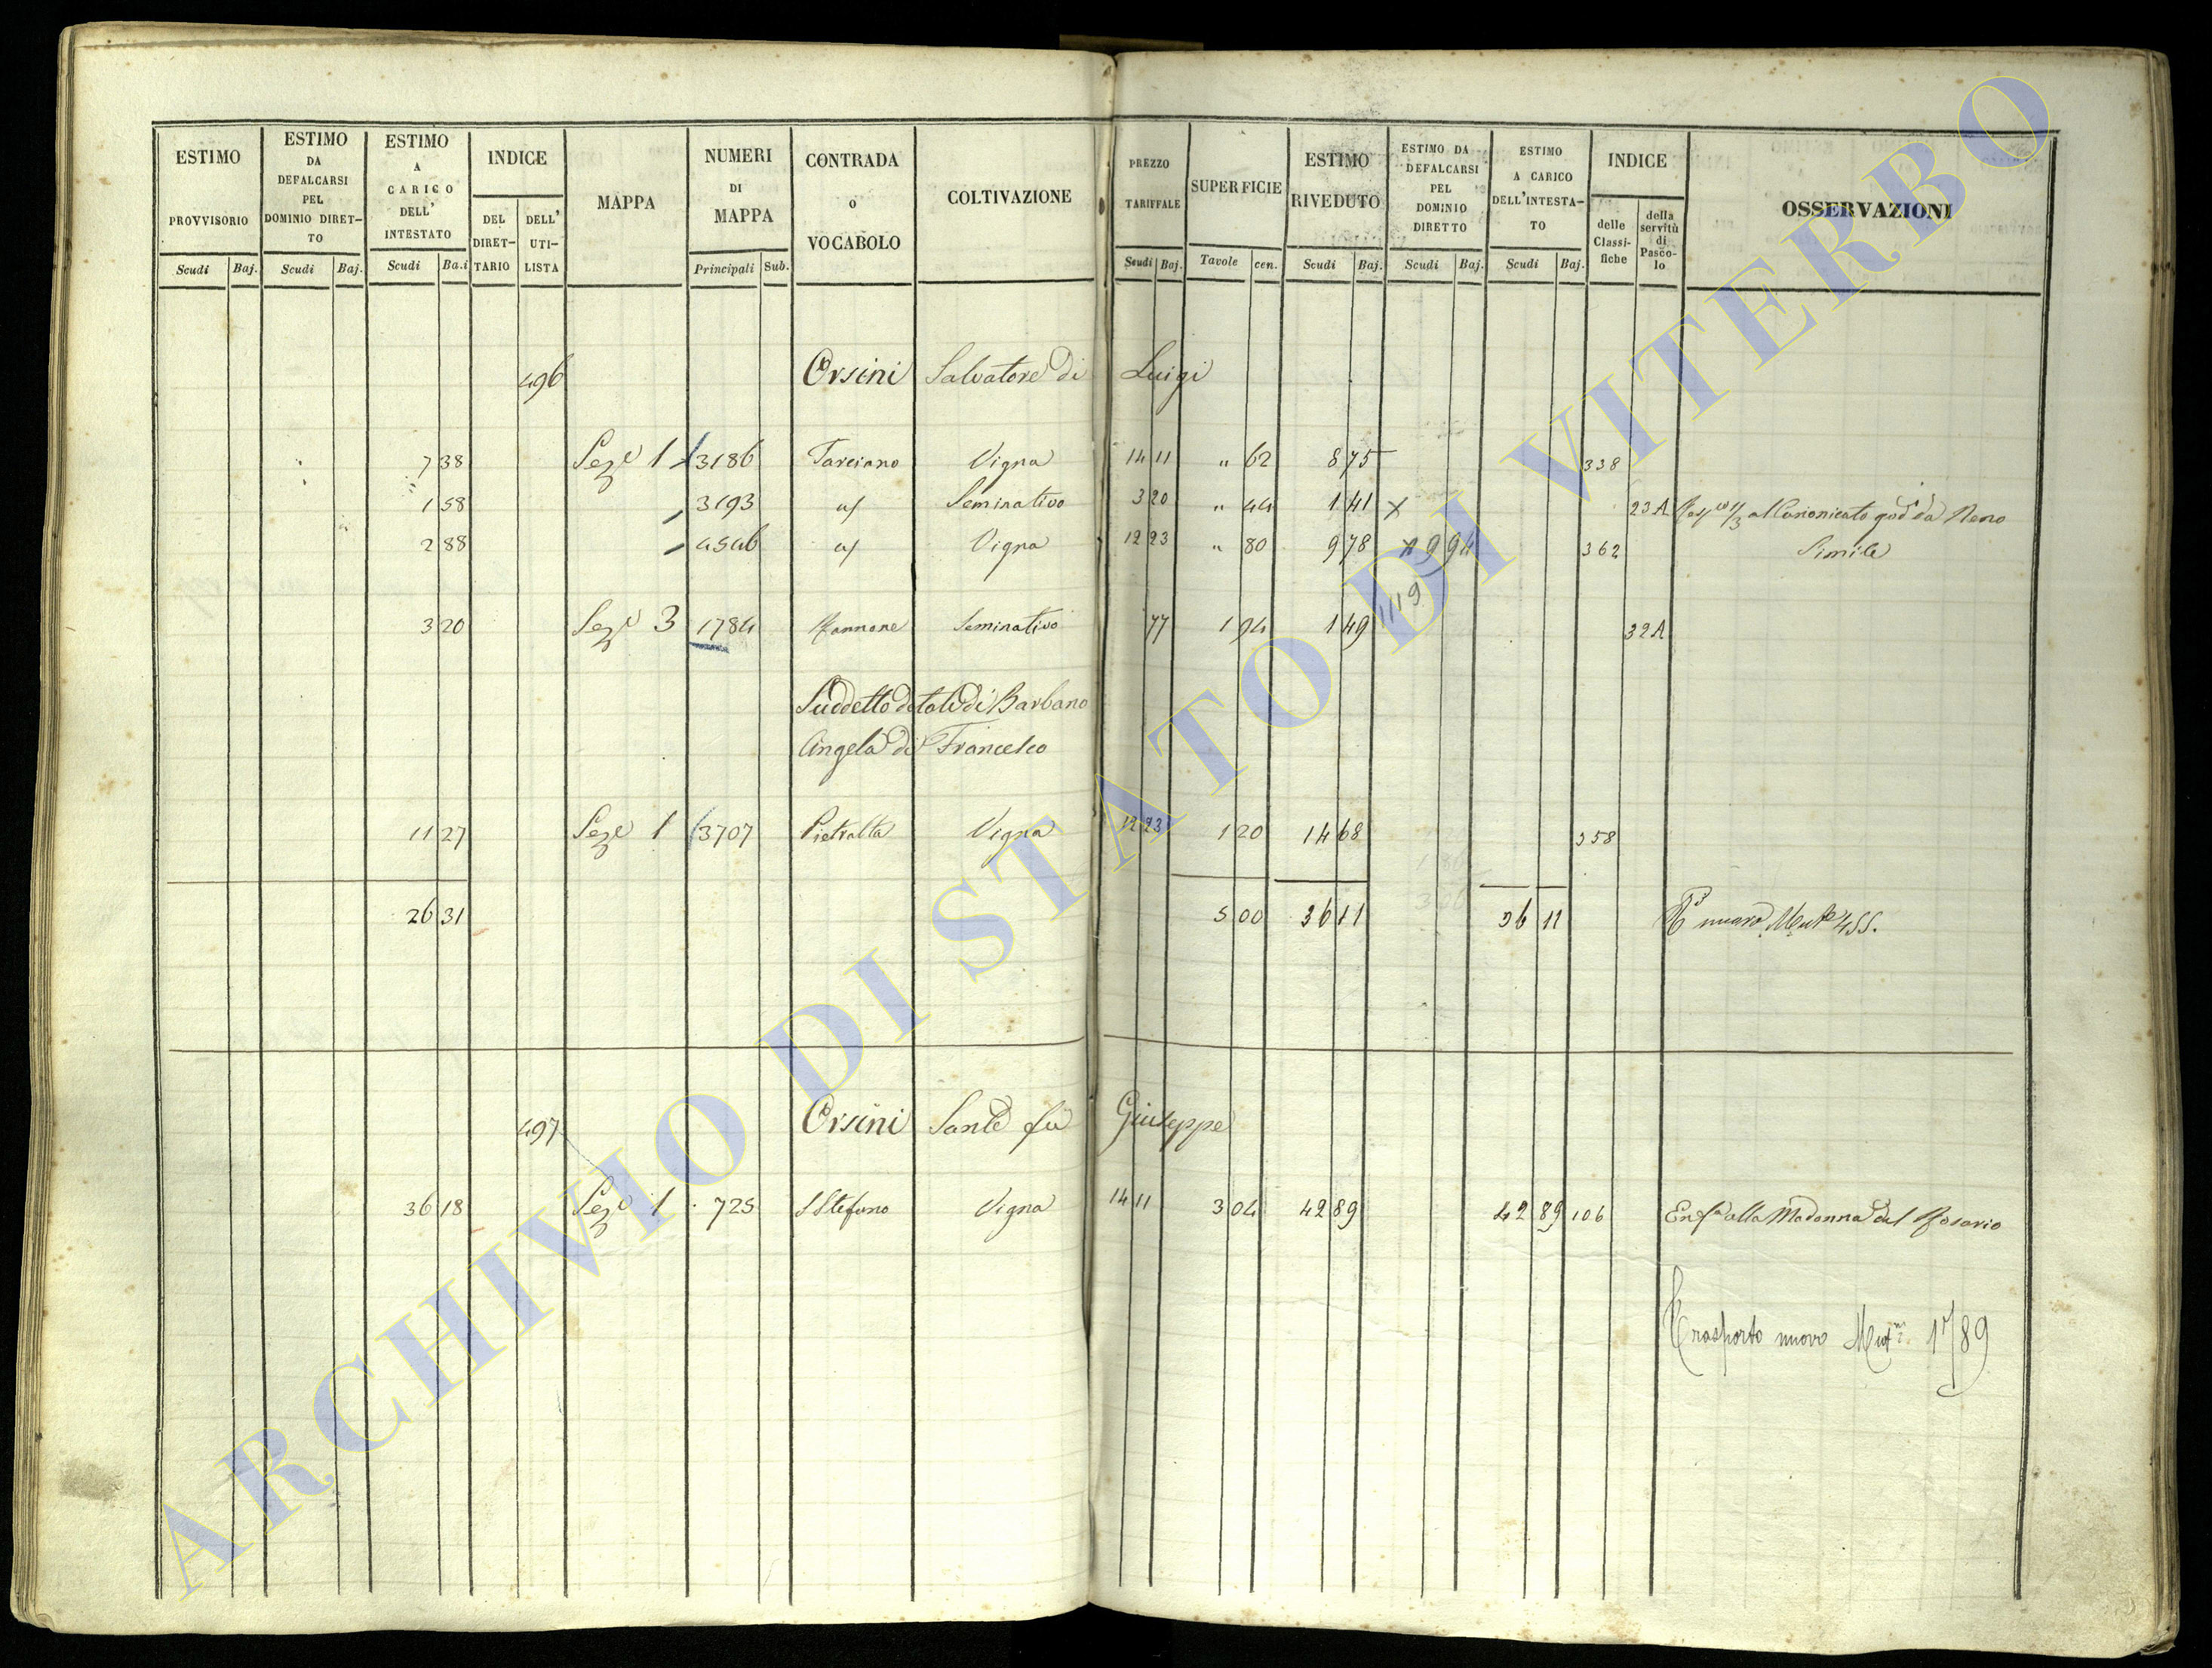 ESTIMO PROVVISORIO Scudi Baj.
ESTIMO DA DEFALCARSI PEL DOMINIO DIRET-TO Scudi Baj.
ESTIMO A CARICO DELL' INTESTATO Scudi Ba.i
INDICE DEL DIRET-TARIO DELL' UTI-LISTA
MAPPA
NUMERI DI MAPPA Principali Sub.
CONTRADA o VOCABOLO
COLTIVAZIONE
PREZZO TARIFFALE Scudi Baj.
SUPERFICIE Tavole cen.
ESTIMO RIVEDUTO Scudi Baj.
ESTIMO DA DEFALCARSI PEL DOMINIO DIRETTO Scudi Baj.
ESTIMO A CARICO DELL'INTESTA-TO Scudi Baj.
INDICE delle Classi-fiche della servitù di Pasco-lo
OSSERVAZIONI
496 Orsini Salvatore di Luigi
7 38 Sezе 1 3186 Tarciano Vigna 14 11 " 62 8 75 338
1 58 3193 a/ Seminativo 3 20 " 44 1 41 X 23 A 1/3 al Canonicato god da Neno
2 88 4546 a/ Vigna 12 23 " 80 9 78 X 9 94 362 Simile
1119
3 20 Seze 3 1784 Seminativo 77 1 94 1 49 32 A
Suddetto dotale di Barbano
Angela di Francesco
11 27 Seze 1 3707 Pietralta Vigna 12 23 1 20 14 68 358
26 31 5 00 36 11 36 11 nuovo 455.
497 Orsini Sante fu Giuseppe
36 18 Seze 1 725 S Stefano Vigna 14 11 3 04 42 89 42 89 106 Enfa alla Madonna del Rosario
Trasporto nuovo 1789
ARCHIVIO DI STATO DI VITERBO